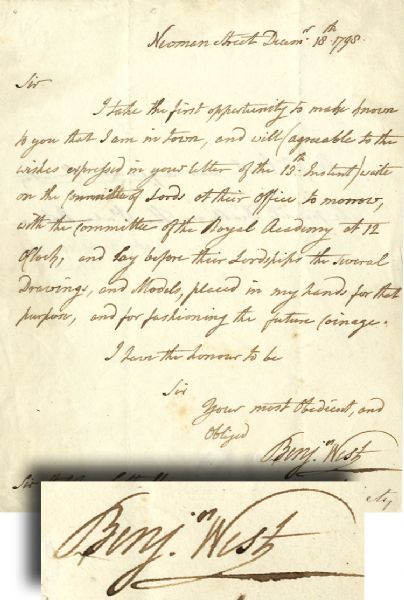 Newman Street Decmr. 18th. 1798.
Sir
I take the first opportunity to make known
to you that I am in town, and will (agreable to the
wishes expressed in your letter of the 12th. Instent) waite
on the committee of Lords at their office to morrow,
with the committee of the Royal Academy at 12
OClock, and Lay before their Lordships the several
Drawings, and Models, placed in my hands for that
purpose, and for fashioning the future Coinage.
I have the honour to be
Sir
Your most Obedient, and
Obliged
Benjn. West
Benjn. West